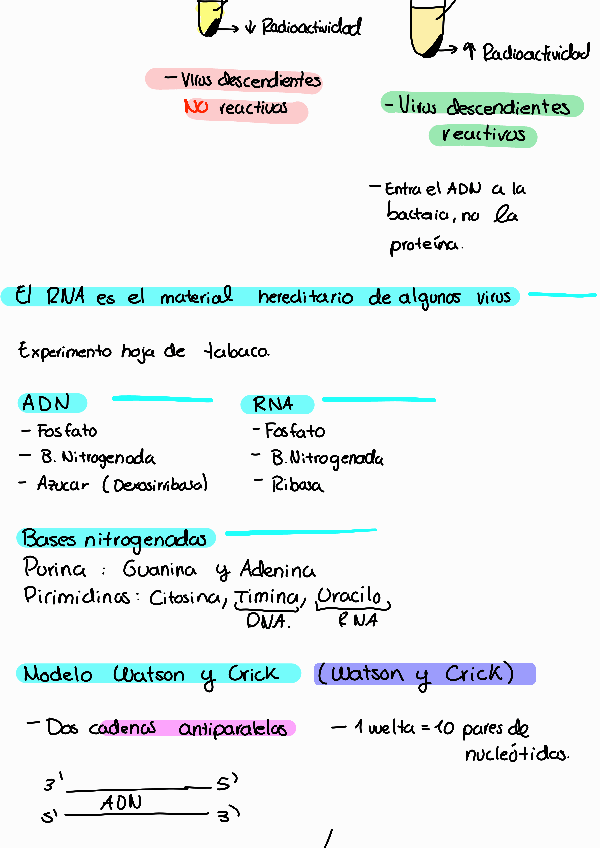 → ↓ Radioactividad
→ ↑ Radioactividad
- Virus descendientes
NO reactivos
- Virus descendientes
reactivos
- Entra el ADN a la
bacteria, no la
proteína.
El RNA es el material hereditario de algunos virus
Experimento hoja de tabaco.
ADN
- Fosfato
- B. Nitrogenada
- Azucar (Dexosirribosa)
RNA
- Fosfato
- B. Nitrogenada
- Ribosa
Bases nitrogenadas
Purina : Guanina y Adenina
Pirimidinas : Citosina, Timina, Uracilo,
DNA. RNA
Modelo Watson y Crick (Watson y Crick)
- Dos cadenas antiparalelas
- 1 vuelta = 10 pares de
nucleótidos.
3' 5'
ADN
5' 3'